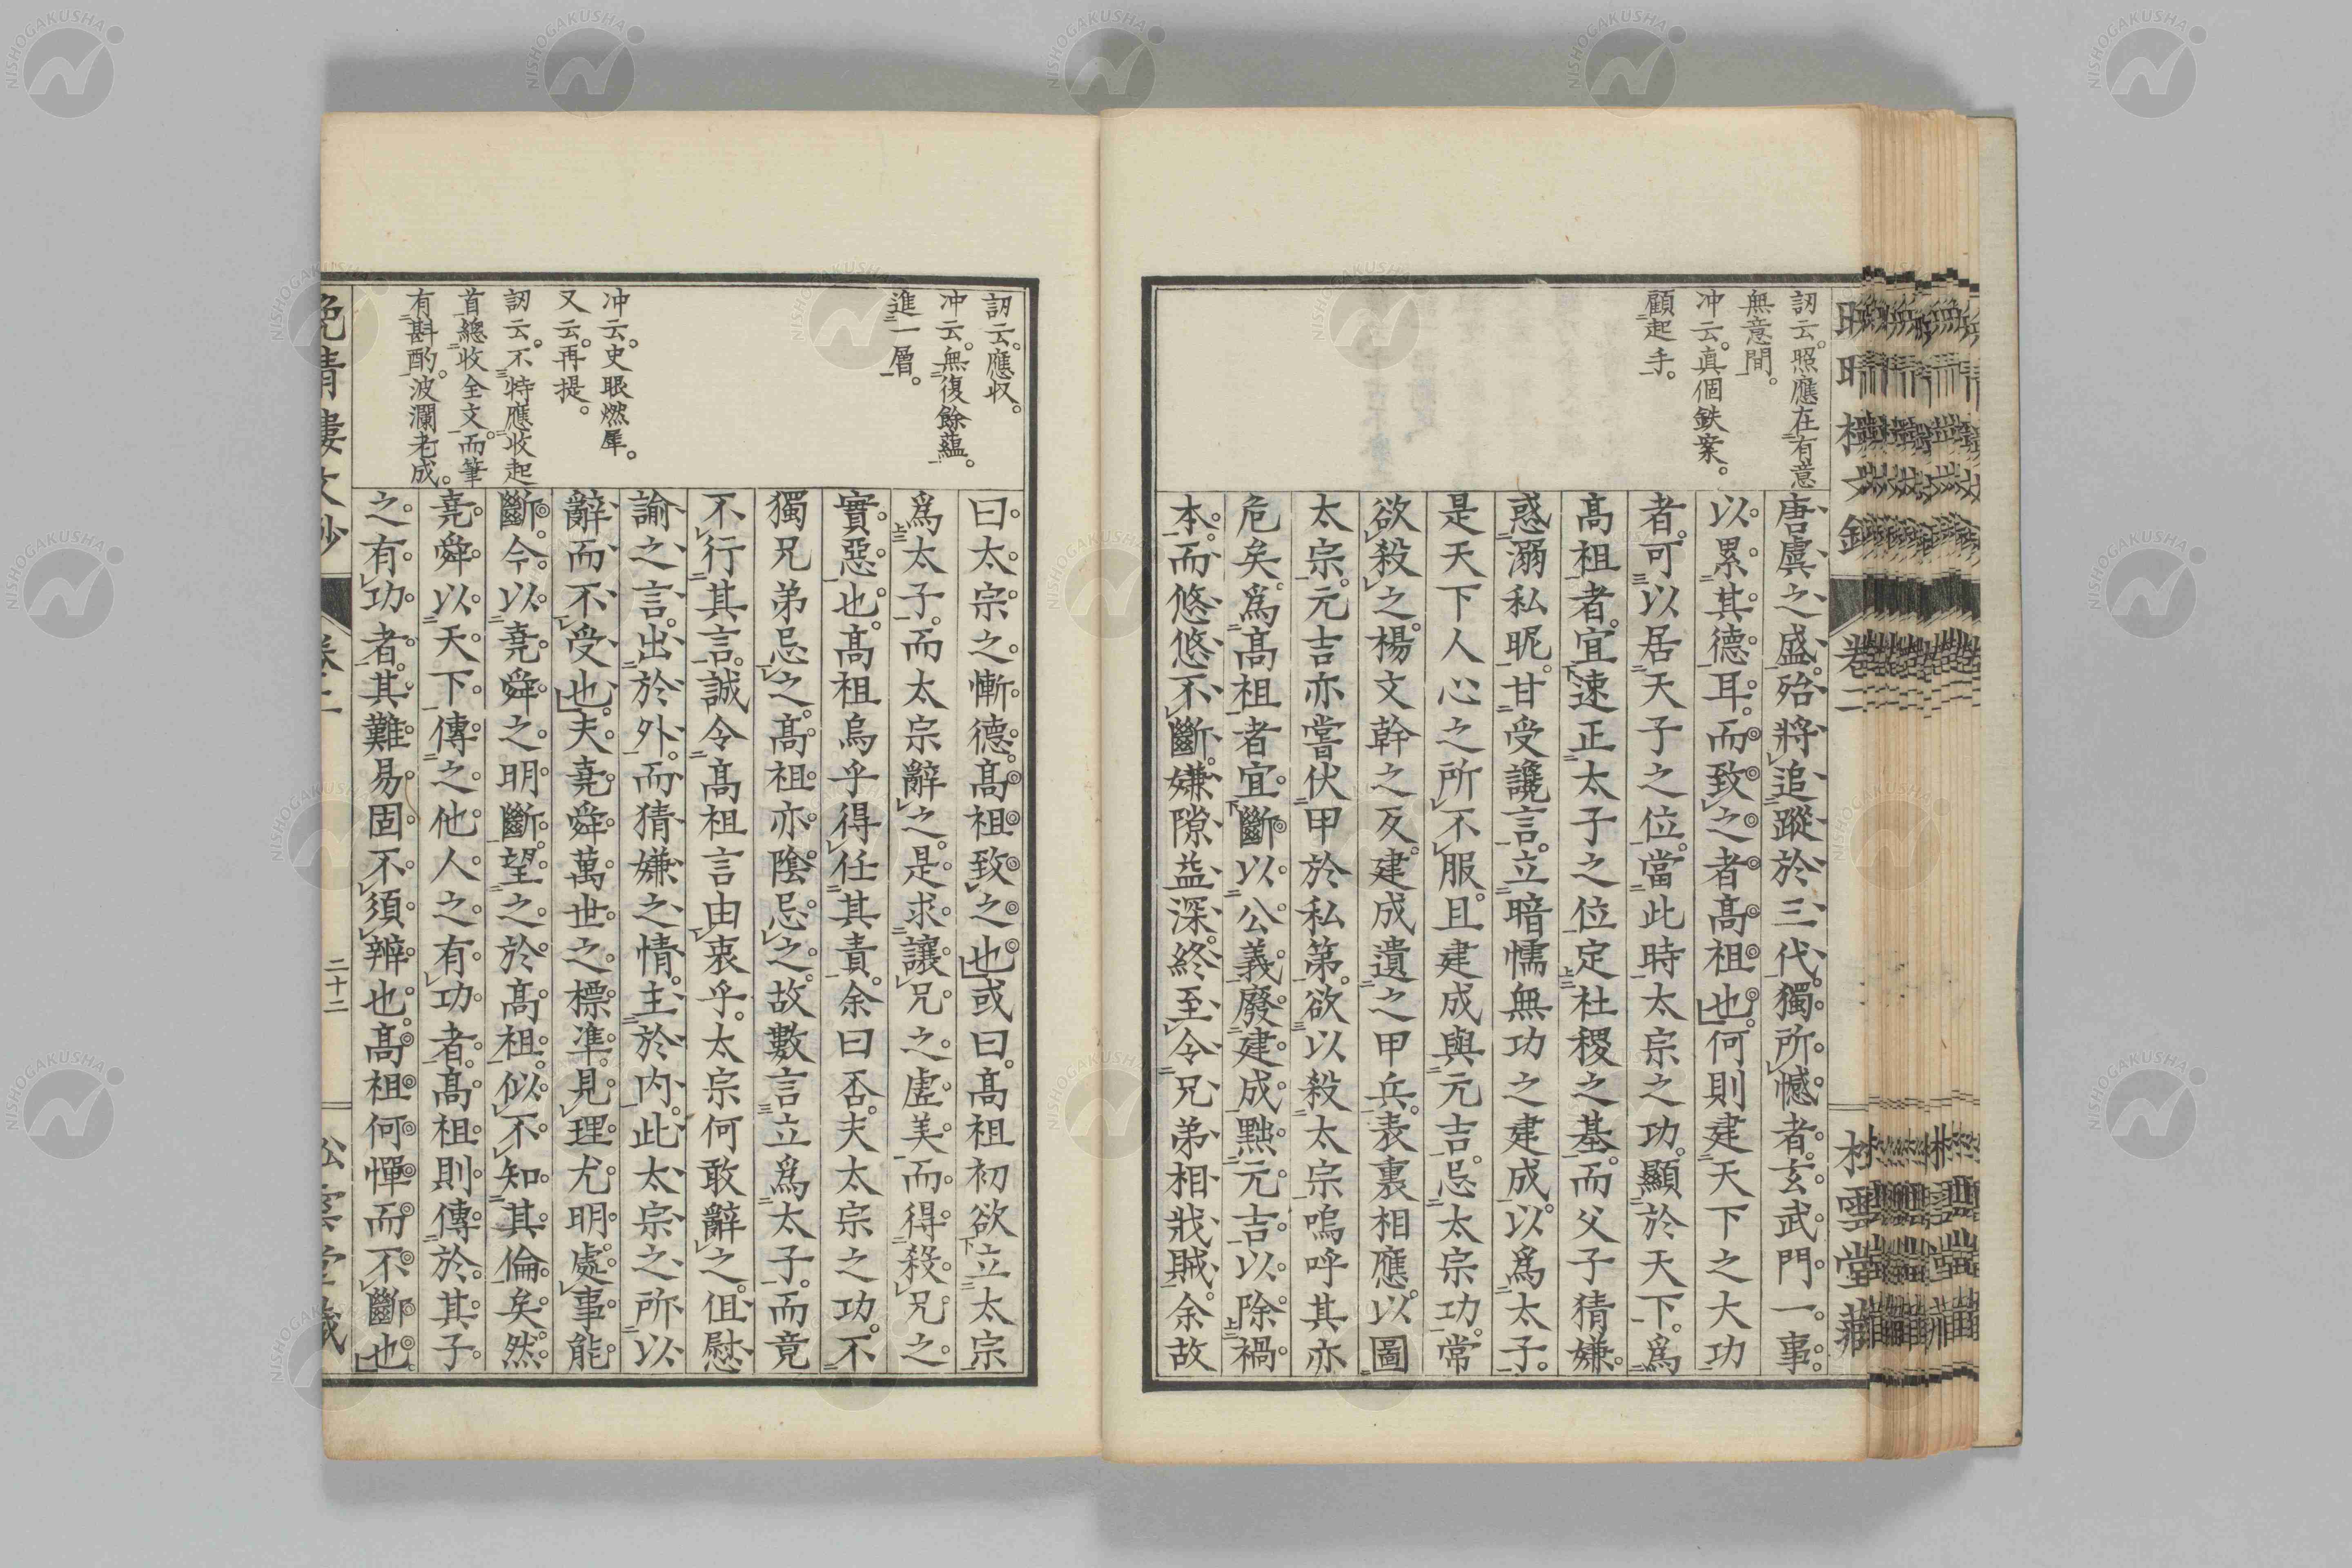 訒云。照應在有意
無意間。
冲云。真個鉄案。
顧起手。
唐虞之盛。殆將追蹤於三代。獨所憾者。玄武門一事。
以累其德耳。而致之者高祖也。何則建天下之大功
者。可以居天子之位。當此時太宗之功。顯於天下。爲
高祖者。宜速正太子之位定社稷之基。而父子猜嫌。
惑溺私昵。甘受讒言。立暗懦無功之建成。以爲太子。
是天下人心之所不服。且建成與元吉。忌太宗功。常
欲殺之。楊文幹之反。建成遺之甲兵。表裏相應。以圖
太宗。元吉亦嘗伏甲於私第。欲以殺太宗。嗚呼其亦
危矣。爲高祖者宜斷以公義。廢建成。黜元吉。以除禍
本。而悠悠不斷。嫌隙益深。終至令兄弟相戕賊。余故
卷二
訒云。應収。
冲云。無復餘蘊。
進一層。
冲云。史眼燃犀。
又云。再提。
訒云。不特應收起
首總收全文。而筆
有斟酌。波瀾老成。
曰太宗之慚德。高祖致之也。或曰。高祖初欲立太宗
爲太子。而太宗辭之。是求讓兄之虛美。而得殺兄之
實惡也。高祖烏乎得任其責。余曰否。夫太宗之功。不
獨兄弟忌之。高祖亦陰忌之。故數言立爲太子。而竟
不行其言。誠令高祖言由衷乎。太宗何敢辭之。但慰
諭之言。出於外。而猜嫌之情。主於内。此太宗之所以
辭而不受也。夫堯舜萬世之標準。見理尤明。處事能
斷。今以堯舜之明斷。望之於高祖。似不知其倫矣。然
堯舜以天下。傳之他人之有功者。高祖則傳於其子
之有功者。其難易固不須辨也。高祖何憚而不斷也。
晩晴樓文鈔
二十二
松雲堂藏
NISHOGAKUSHA